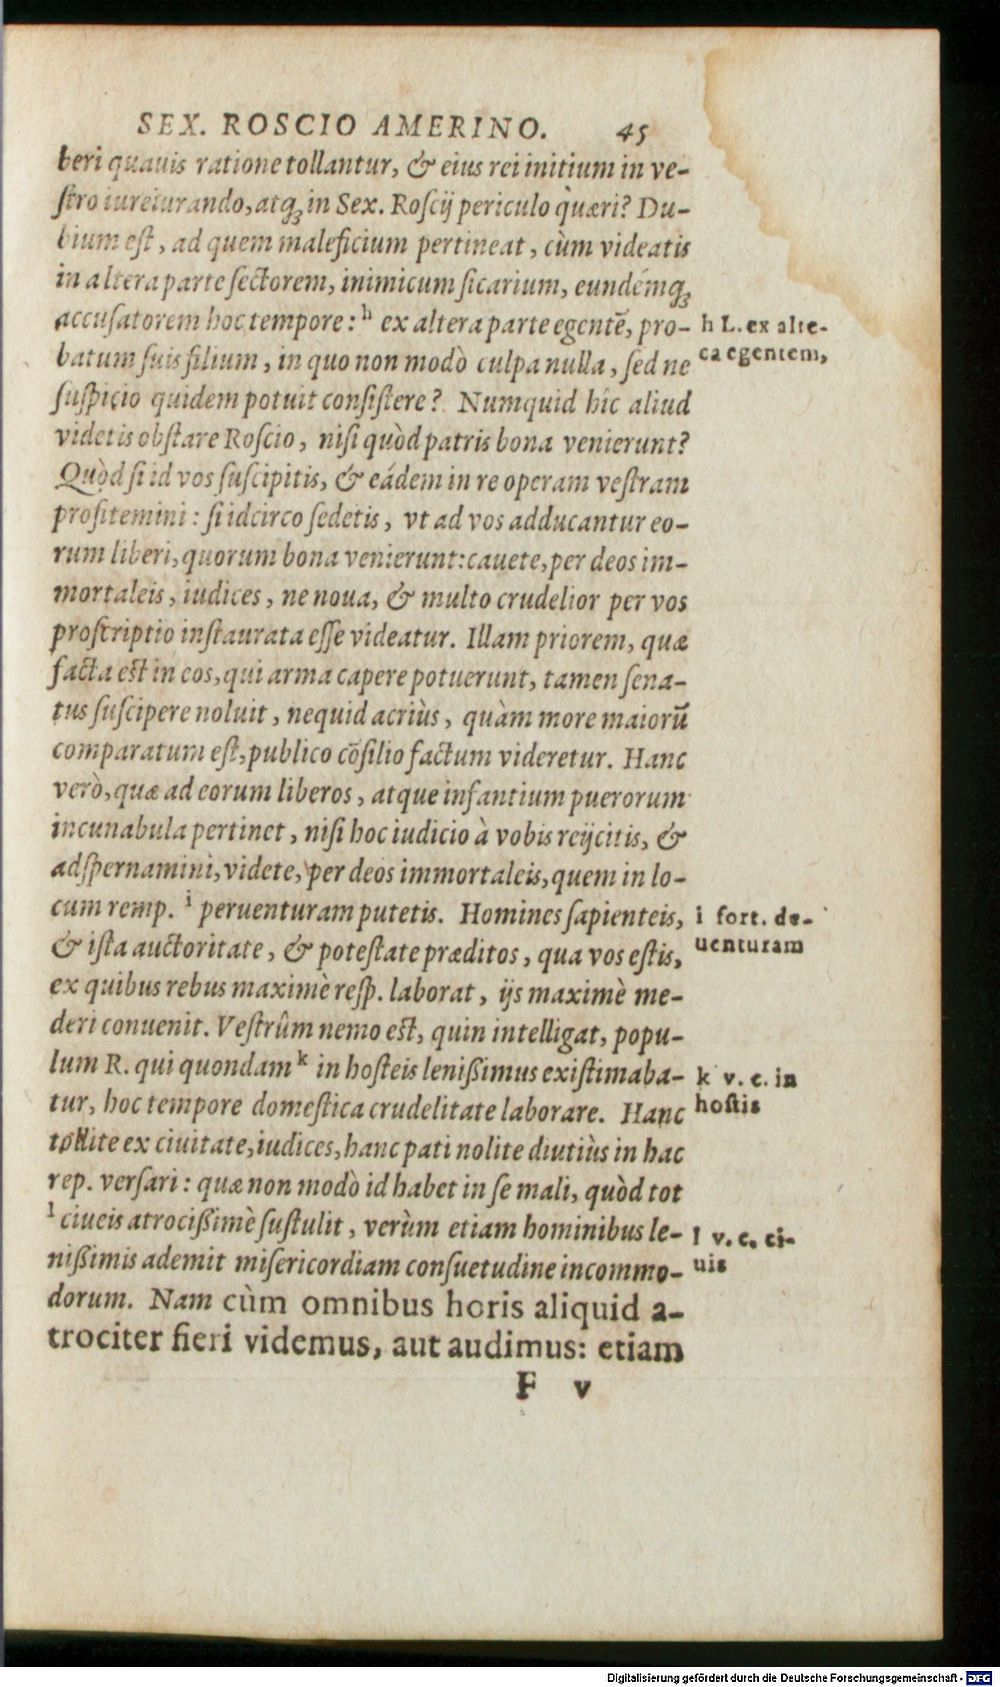 SEX. ROSCIO AMERINO. 45
beri quauis ratione tollantur, & eius rei initium in ve-
ſtro iureiurando, atq; in Sex. Roſcij periculo quæri? Du-
bium eſt, ad quem maleficium pertineat, cùm videatis
in altera parte ſectorem, inimicum ſicarium, eundémq;
accuſatorem hoc tempore: h ex altera parte egentē, pro-
h L. ex alte-
batum ſuis filium, in quo non modò culpa nulla, ſed ne
ca egentem,
ſuſpicio quidem potuit conſiſtere? Numquid hîc aliud
videtis obſtare Roſcio, niſi quòd patris bona venierunt?
Quòd ſi id vos ſuſcipitis, & eádem in re operam veſtram
profitemini: ſi idcirco ſedetis, vt ad vos adducantur eo-
rum liberi, quorum bona venierunt: cauete, per deos im-
mortaleis, iudices, ne noua, & multo crudelior per vos
proſcriptio inſtaurata eſſe videatur. Illam priorem, quæ
facta eſt in eos, qui arma capere potuerunt, tamen ſena-
tus ſuſcipere noluit, nequid acriùs, quàm more maiorū
comparatum eſt, publico cōſilio factum videretur. Hanc
verò, quæ ad eorum liberos, atque infantium puerorum
incunabula pertinet, niſi hoc iudicio à vobis reijcitis, &
adſpernamini, videte, per deos immortaleis, quem in lo-
cum remp. i peruenturam putetis. Homines ſapienteis,
i fort. de-
& iſta auctoritate, & poteſtate præditos, qua vos eſtis,
uenturam
ex quibus rebus maximè reſp. laborat, ijs maximè me-
deri conuenit. Veſtrûm nemo eſt, quin intelligat, popu-
lum R. qui quondam k in hoſteis leniſſimus exiſtimaba-
k v. c. in
tur, hoc tempore domeſtica crudelitate laborare. Hanc
hoſtis
tollite ex ciuitate, iudices, hanc pati nolite diutiùs in hac
rep. verſari: quæ non modò id habet in ſe mali, quòd tot
l ciueis atrociſſimè ſuſtulit, verùm etiam hominibus le-
l v. c. ci-
niſſimis ademit miſericordiam conſuetudine incommo-
uis
dorum. Nam cùm omnibus horis aliquid a-
trociter fieri videmus, aut audimus: etiam
F v
Digitalisierung gefördert durch die Deutsche Forschungsgemeinschaft - DFG